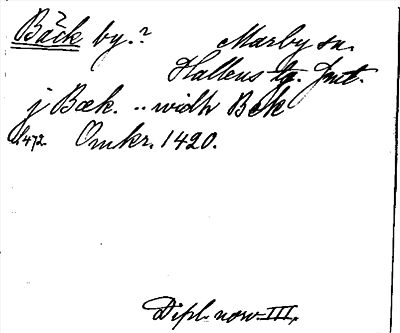 Bäck by.? Marby sn.
Hallens tg. Jmt.
j Bæk. .. widh Bek
s. 472. Omkr. 1420.
Dipl. norv. III.